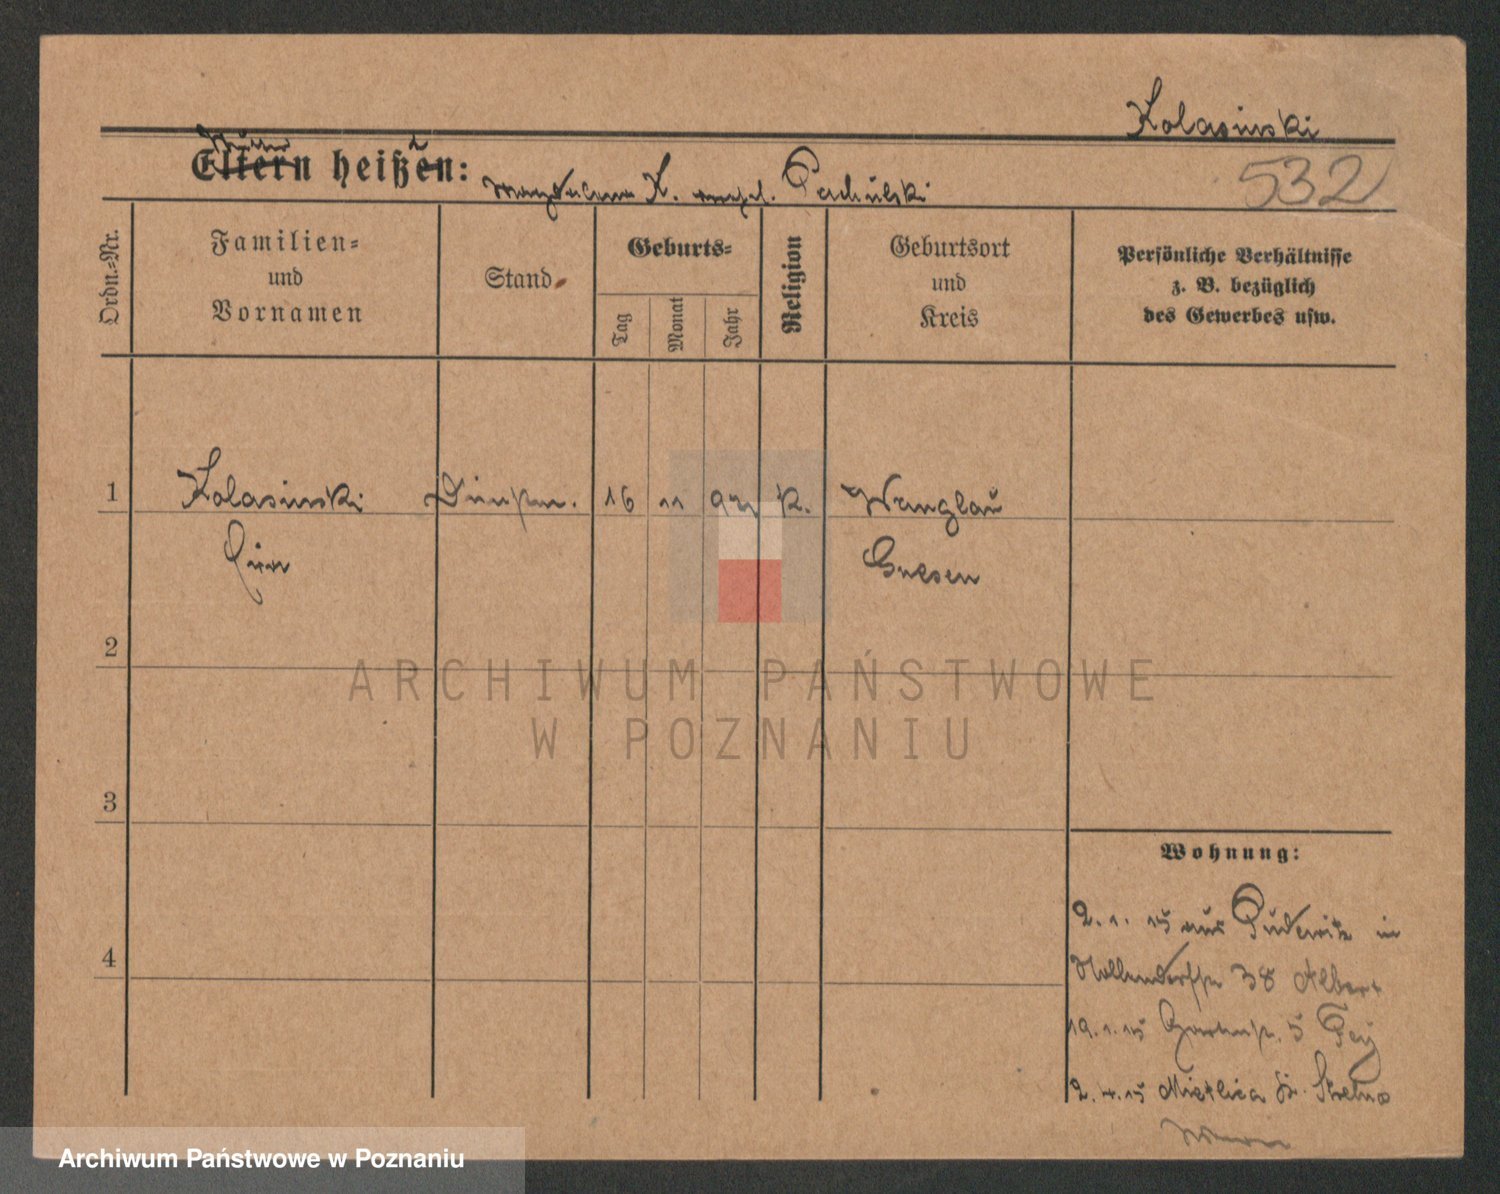 Kolasinski
Eltern heißen:
Magdalena K. verehel. Pachulski
532
Ordn.=Nr.
Familien=
und
Vornamen
Stand
Geburts=
Tag
Monat
Jahr
Religion
Geburtsort
und
Kreis
Persönliche Verhältnisse
z. B. bezüglich
des Gewerbes usw.
1
Kolasinski
16
11
97
K.
Wenglau
Gnesen
2
3
4
Wohnung:
2. 1. 15 aus Pudewitz in
Nollendorfstr 38 Albert
19. 1. 15 Gartenstr. 5
2. 4. 15 Mietlica Kr. Strelno
ARCHIWUM PAŃSTWOWE
W POZNANIU
Archiwum Państwowe w Poznaniu